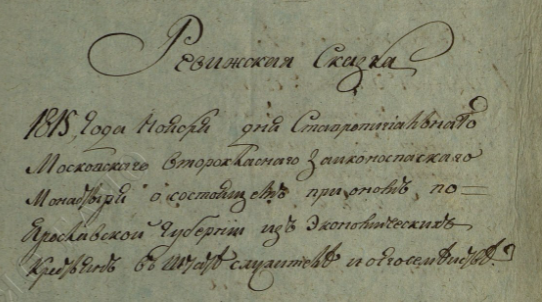 Ревижская Сказка
1815, Года Ноября дня Ставропигиальнаго
Московскаго второкласнаго Заиконоспаскаго
Монастыря о состоящемъ при ономъ, по=
Ярославской Губернии изъ Экономическихъ
Крестьянъ въ штатѣ служителѣ и о его семѣйствѣ.